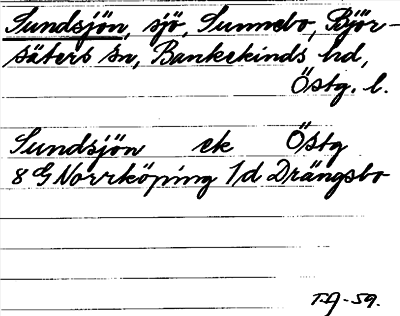 Sundsjön, sjö, Sunnebo, Björ-
säters sn, Bankekinds hd,
Östg. l.
Sundsjön ek Östg
8 G Norrköping 1d Drängsbo
T.A-59.